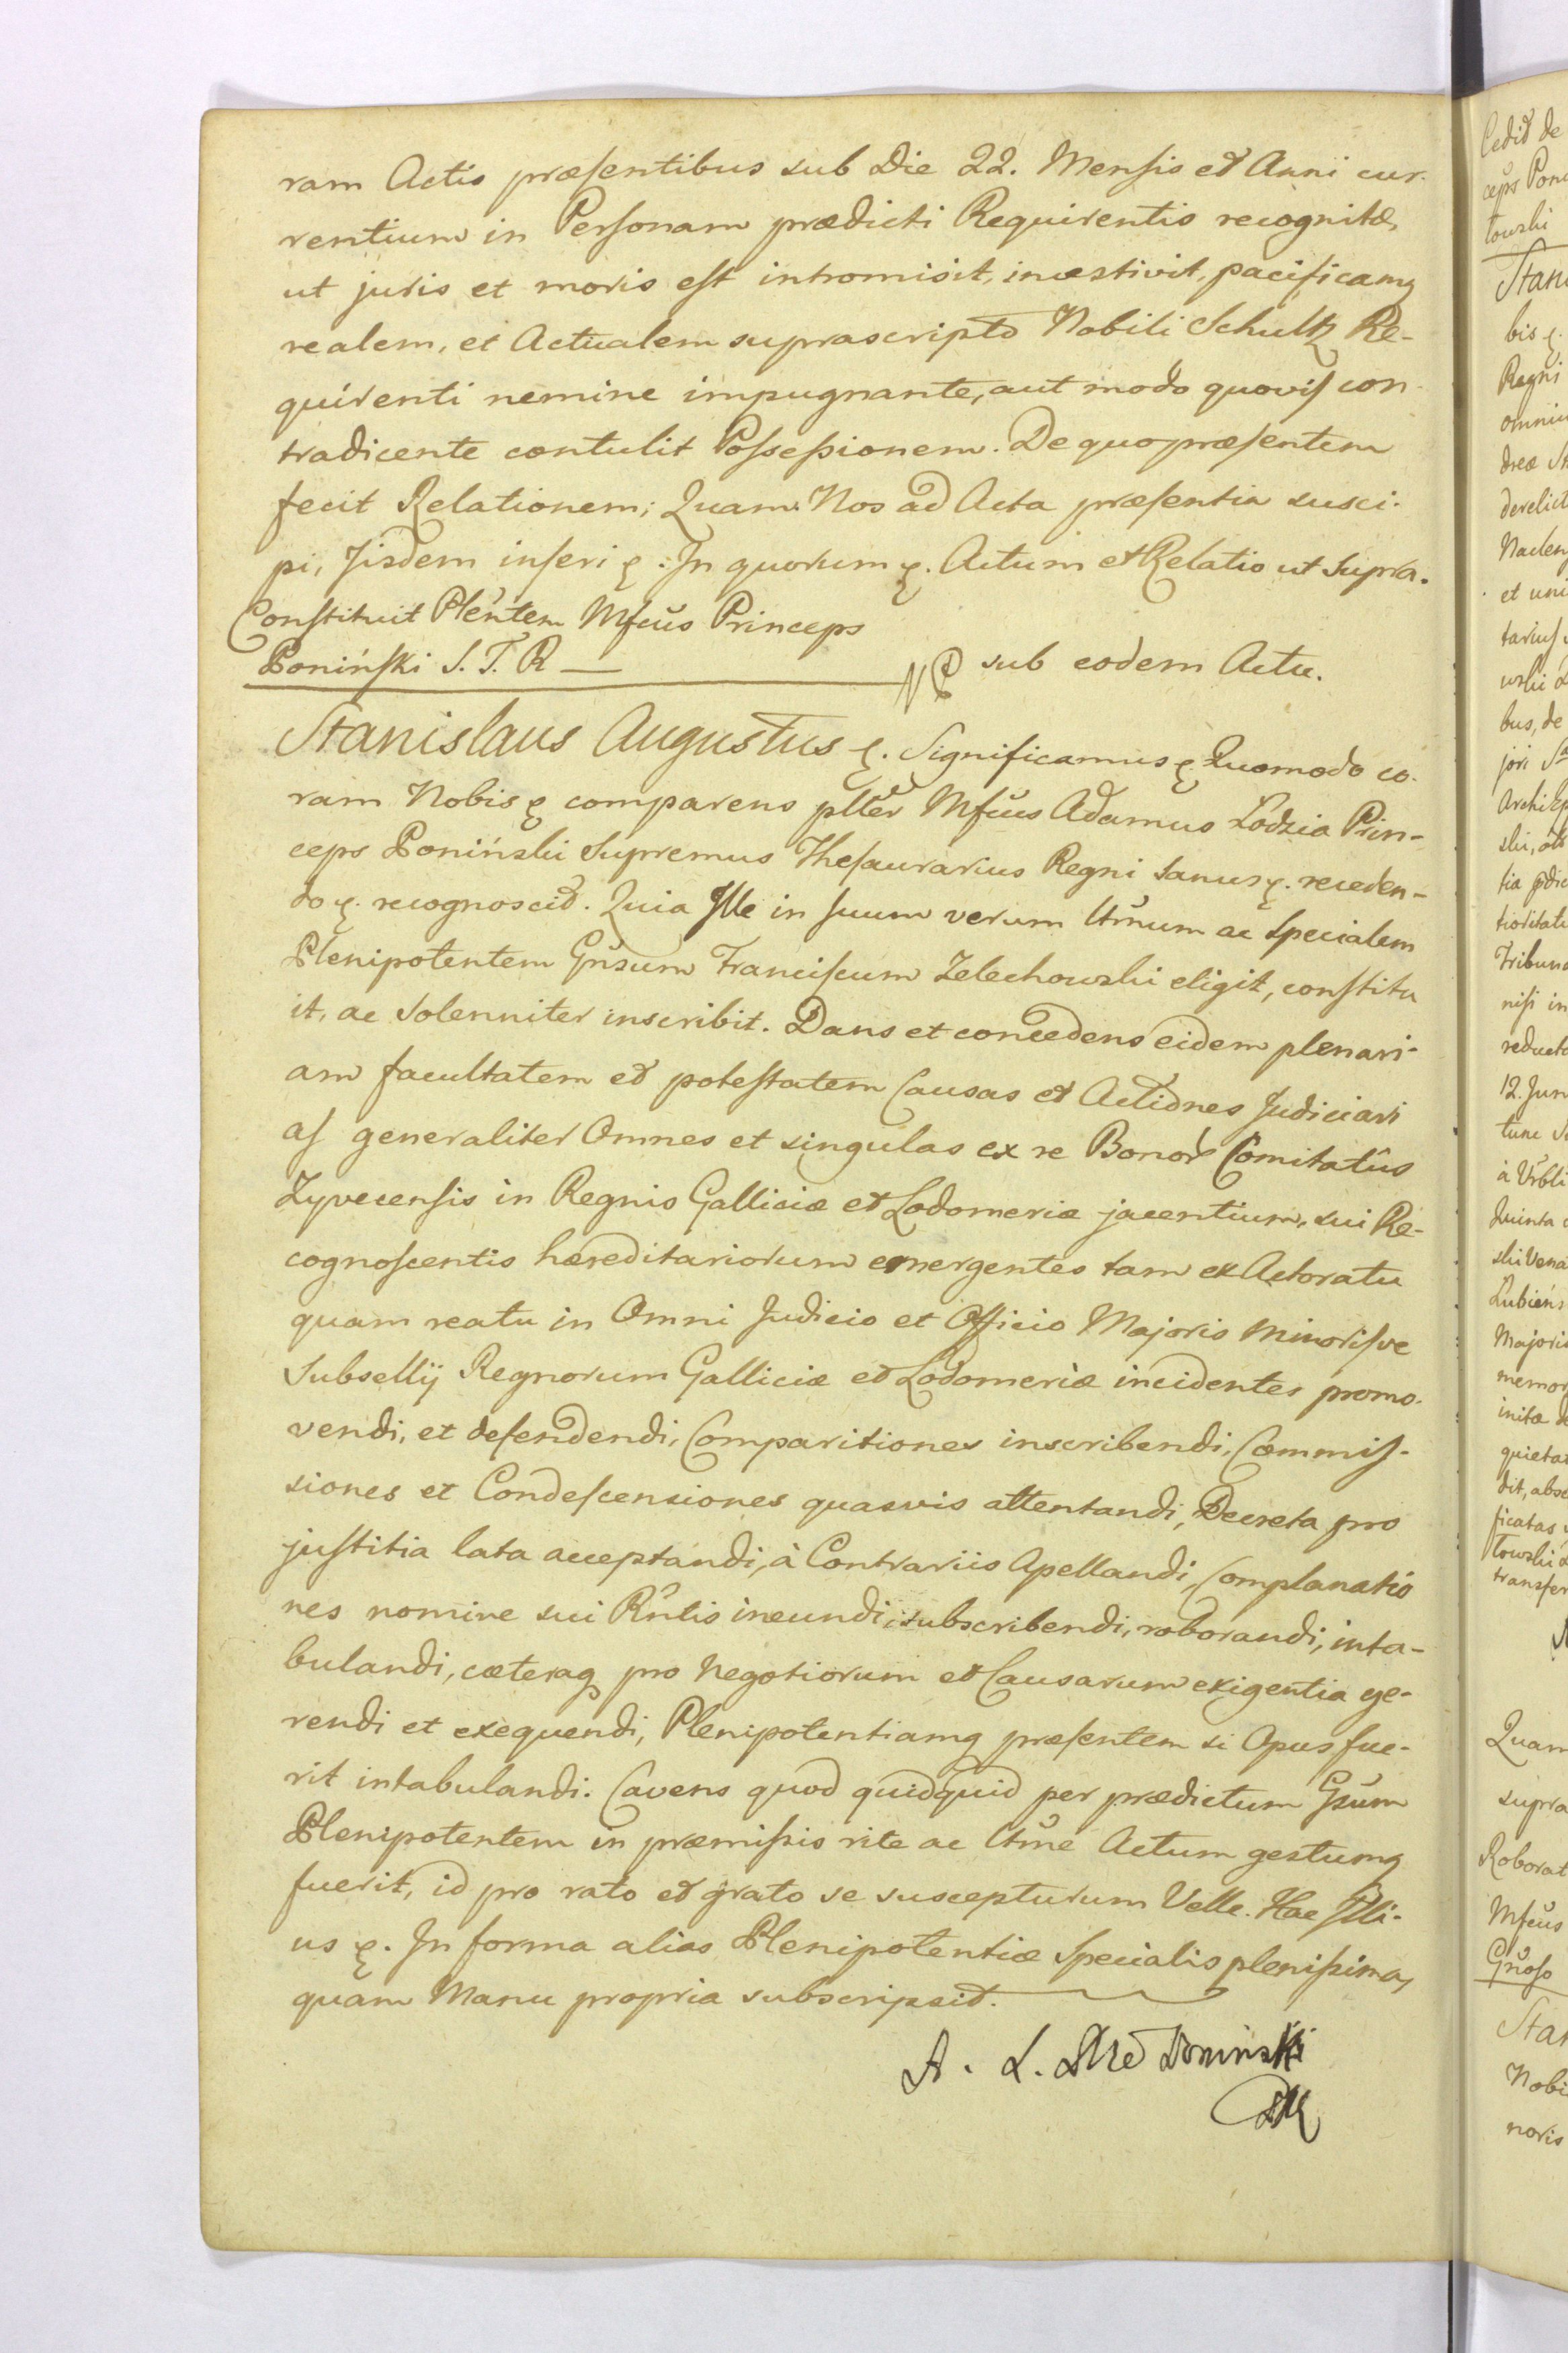 ram Actis præsentibus sub Die 22. Mensis et Anni cur-
rentium in Personam prædicti Requirentis recognitæ,
ut juris et moris est intromisit, investivit, pacificamq
realem, et Actualem suprascripto Nobili Schultz Re-
quirenti nemine impugnante, aut modo quovis con-
tradicente contulit Possessionem. De quo præsentem
fecit Relationem; Quam Nos ad Acta præsentia susci-
pi, Jisdem inseri &. In quorum &. Actum et Relatio ut supra.
Constituit Plentem Mfcus Princeps
Poniński S. T. R — sub eodem Actu.
Stanislaus Augustus &. Significamus &. Quomodo co-
ram Nobis & comparens plter Mfcus Adamus Lodzia Prin-
ceps Poniński Supremus Thesaurarius Regni sanus &. receden-
do &. recognoscit. Quia Ille in suum verum ltmum ac specialem
Plenipotentem Gnsum Franciscum Zelechowski eligit, constitu
it, ac solenniter inscribit. Dans et concedens eidem plenari-
am facultatem et potestatem Causas et Actiones Judiciari
as generaliter Omnes et singulas ex re Bonor Comitatûs
Zyvecensis in Regnis Galliciæ et Lodomeriæ jacentium, sui Re-
cognoscentis hæreditariorum emergentes tam ex Actoratu
quam reatu in Omni Judicio et Officio Majoris Minorisve
Subsellij Regnorum Galliciæ et Lodomeriæ incidentes promo-
vendi, et defendendi, Comparitiones inscribendi, Commis-
siones et Condescensiones quasvis attentandi, Decreta pro
justitia lata acceptandi, à Contrariis Apellandi, Complanatio
nes nomine sui Rntis ineundi, subscribendi, roborandi, inta-
bulandi, cæteraq pro Negotiorum et Causarum exigentia ge-
rendi et exequendi, Plenipotentiamq præsentem si Opus fue-
rit intabulandi. Cavens quod quidquid per prædictum Gsum
Plenipotentem in præmissis rite ac ltme Actum gestumq
fuerit, id pro rato et grato se suscepturum Velle. Hac Illi-
us &. In forma alias Plenipotentiæ Specialis plenissima,
quam Manu propria subscripsit.
A. L. Poniński
Cedit de
ceps Pon
towski
Stan
bis &.
Regni
omniu
dreæ
derelict
Naclen
et uni
tarius
wski
bus, de
jori
Archi
ski,
tia
Tribun
nisi in
reducto
12. Jun
tunc
à Urbli
Quinta
ski Vena
Lubień
Majoris
memor
initæ
quieta
dit, abs
ficatas
towski
transfer
Quam
supra
Roborat
Mfcus
Gnoso
Stan
Nobi
noris